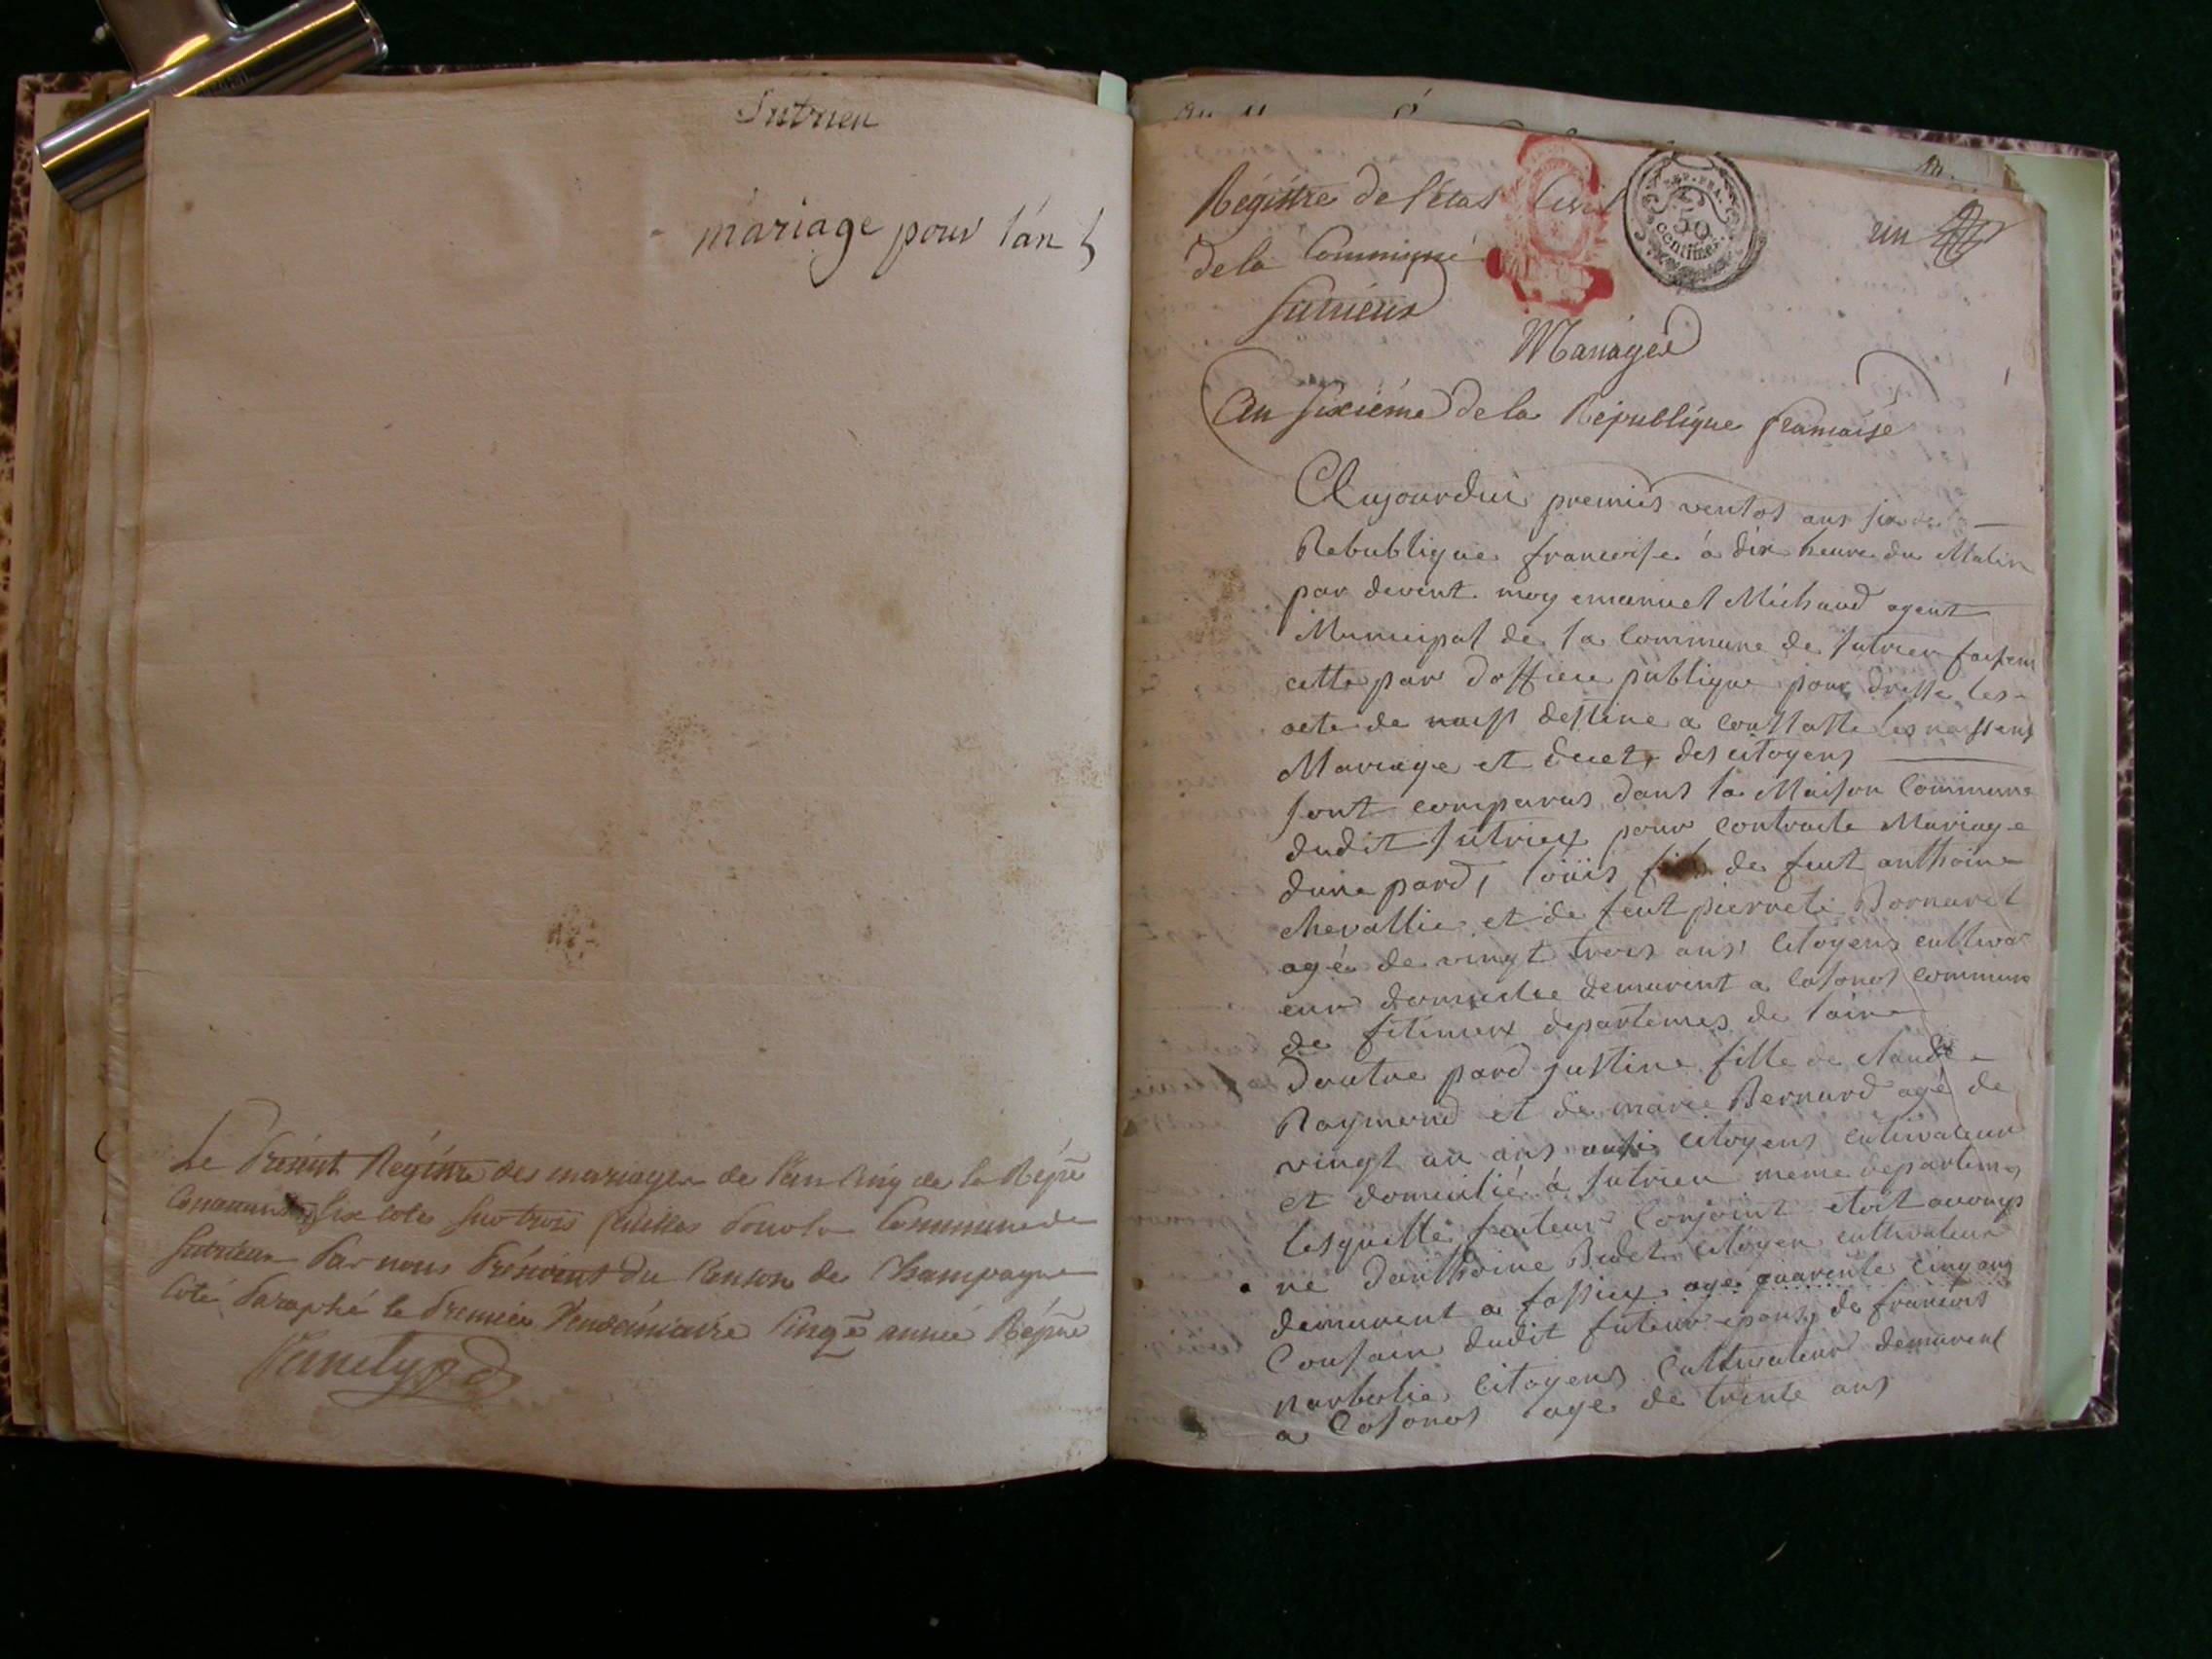 Sutrieu
mariage pour l'an 5
Le Présent Régistre des mariages de l'an Cinq de la Répue
Contenant Six cotes Sur trois feuilles Pour la Commune de
Sutrieux Par nous Président du Canton de Champagne
Coté Paraphé le Premier Vendémiaire Cinqe année Répne
an 11
Régistre de l'état Civil
de la Commune
Sutrieux
REP. FRA.
50
centimes
un
Mariages
An Sixième de la République francaise
Aujourdui premies ventos ans six de la
Rebublique francoise a dix heure du Matin
par devent moy emanuel Michaud agent
Municipal de la Commune de Sutrieu faisent
cette par doffice publique pour dresse les
acte de naiss destine a Constatte les naissens
Mariage et decet des citoyens
sont comparus dans la Maison Commune
dudit Sutrieux pour Contracte Mariage
dune pard, loüis fils de feut anthoine
chevallie et de feut pierrete Bornaret
agé de vingt trois ans Citoyens cultivat
eur domicilie demurent a Cosonos commune
de fitinieux departemes de lain
Doutre pard justine fille de claude
Raymond et de marie Bernard agé de
vingt un ans ausi citoyens cultivateur
et domicilié a Sutrieu meme departemes
lesquelle feuteur Conjoint etoit accomp
ne danthoine Bidet citoyen cultivateur
demurent a fassieux age quarente cinq ans
Cousain dudit futeur epous, de francois
narbolie Citoyens Cultivateur demurent
a Cosonos age de trente ans